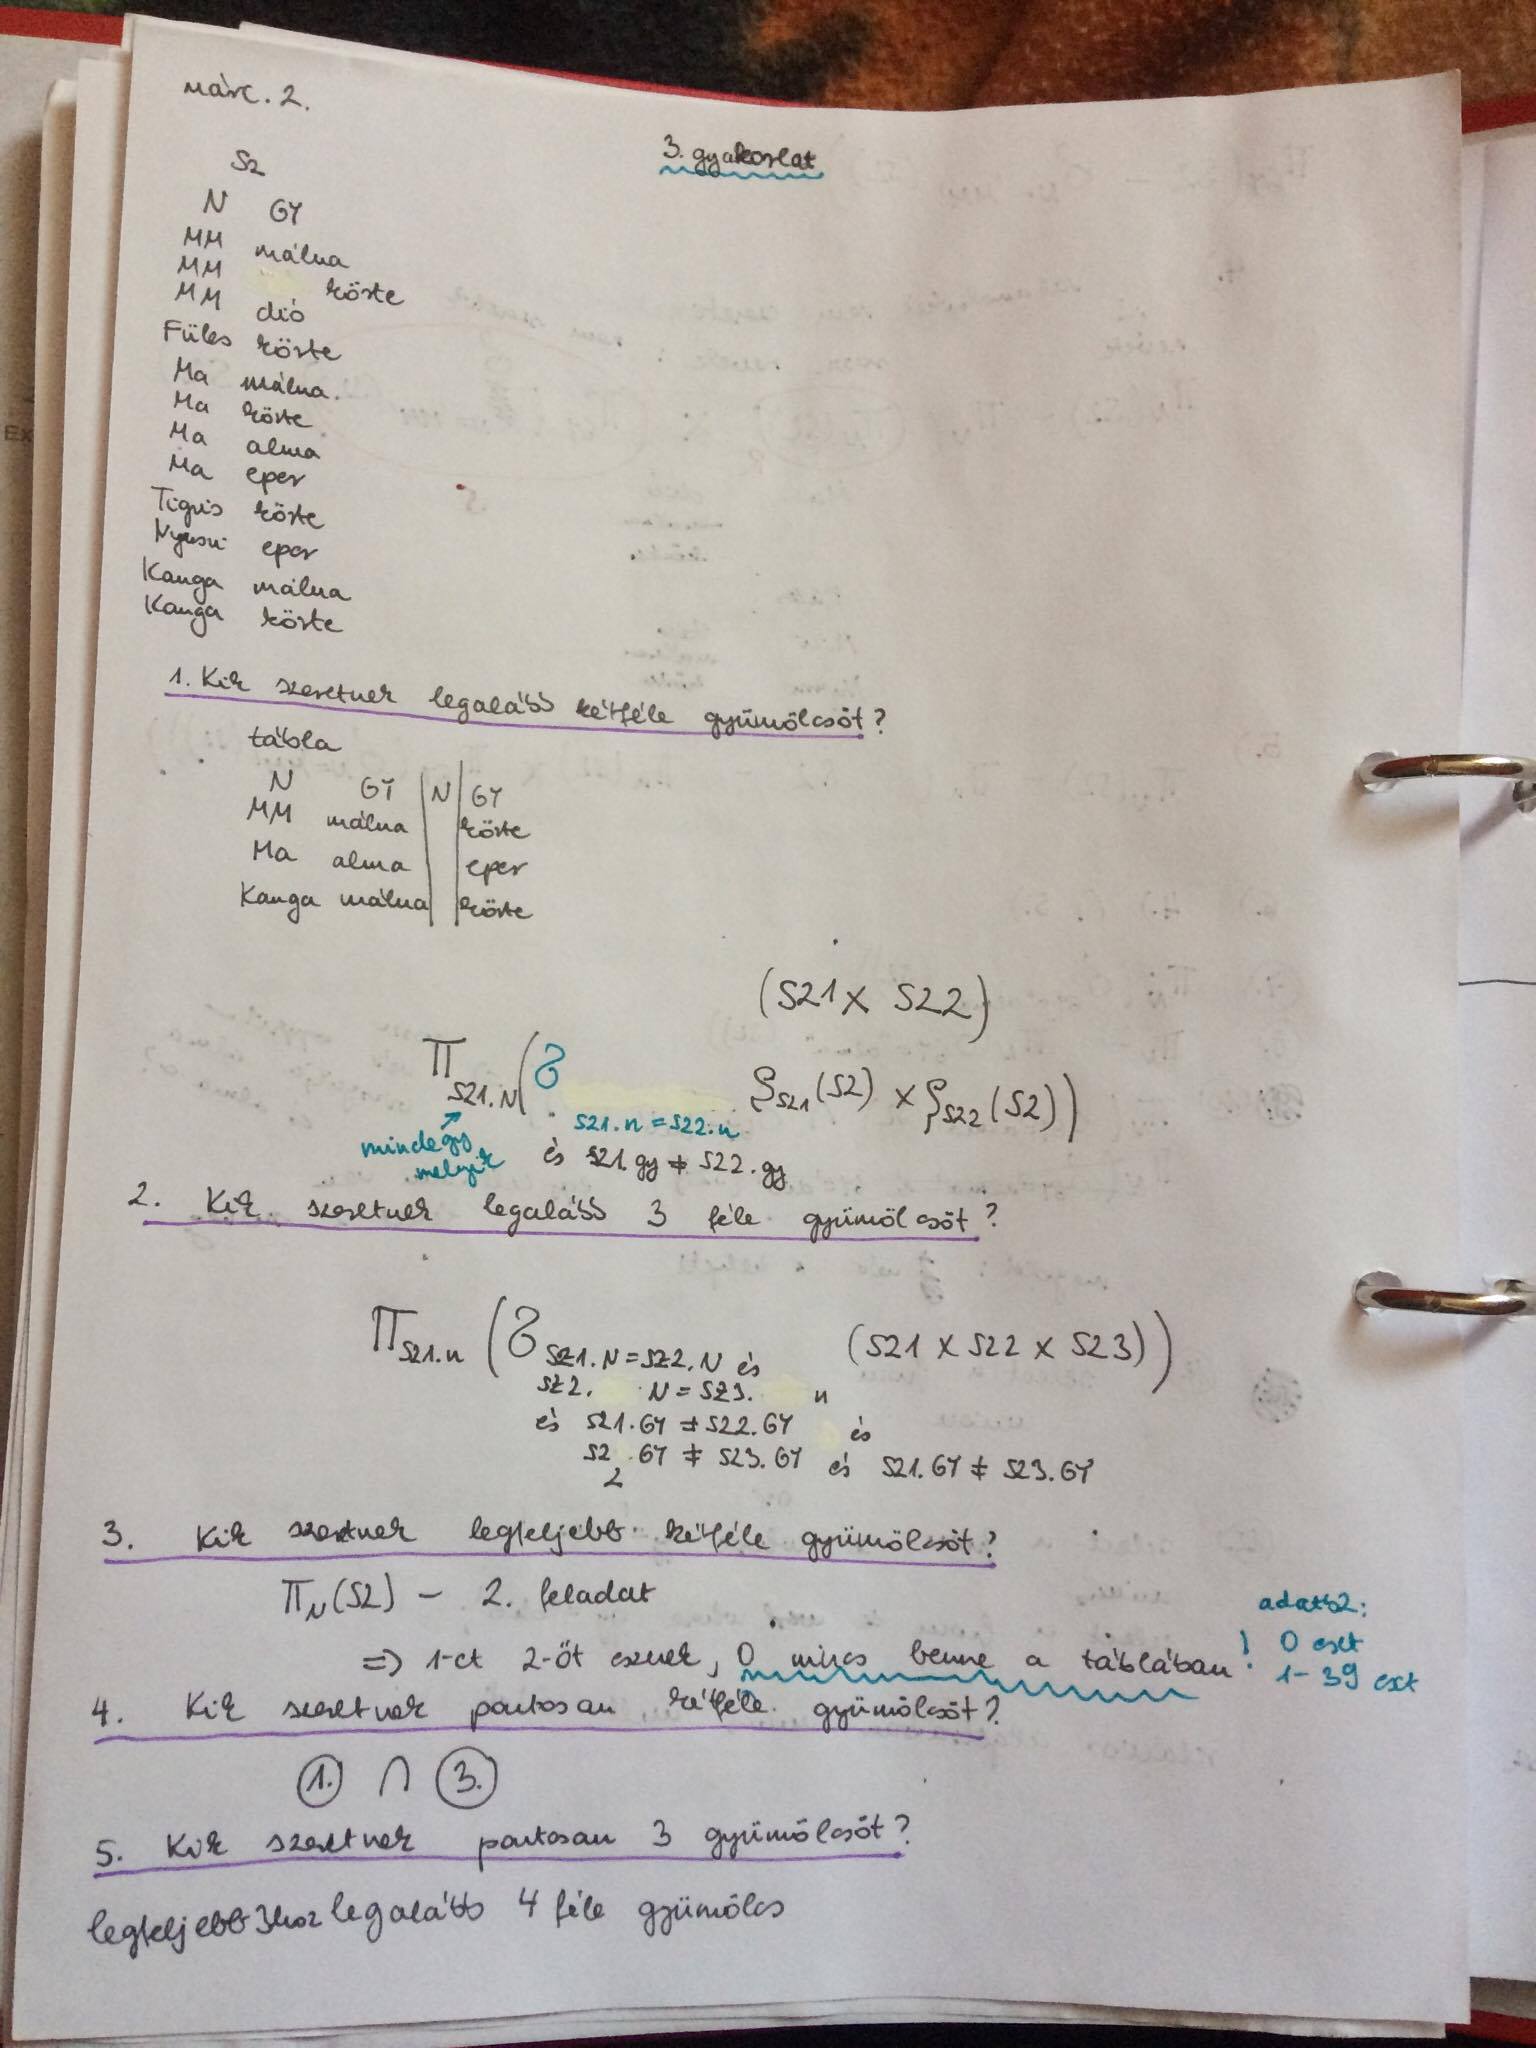 márc. 2.
3. gyakorlat
SZ
N GY
MM málna
MM körte
MM dió
Füles körte
Ma málna.
Ma körte
Ma alma
Ma eper
Tigris körte
Nyuszi eper
Kanga málna
Kanga körte
1. Kik szeretnek legalább kétféle gyümölcsöt?
tábla
N GY N GY
MM málna körte
Ma alma eper
Kanga málna körte
(SZ1 x SZ2)
Π SZ1.N (σ ρSZ1(SZ) x ρSZ2(SZ))
SZ1.n = SZ2.n
mindegy melyik
és SZ1.gy ≠ SZ2.gy
2. Kik szeretnek legalább 3 féle gyümölcsöt?
Π SZ1.n (σ SZ1.N = SZ2.N és (SZ1 x SZ2 x SZ3))
SZ2. N = SZ3. n
és SZ1.GY ≠ SZ2.GY és
SZ2.GY ≠ SZ3.GY és SZ1.GY ≠ SZ3.GY
3. Kik szeretnek legfeljebb kétféle gyümölcsöt?
ΠN(SZ) – 2. feladat
=> 1-et 2-őt esznek, 0 nincs benne a táblában!
adatb2:
0 eset
1-39 eset
4. Kik szeretnek pontosan kétféle gyümölcsöt?
1. ∩ 3.
5. Kik szeretnek pontosan 3 gyümölcsöt?
legfeljebb 3hoz legalább 4 féle gyümölcs